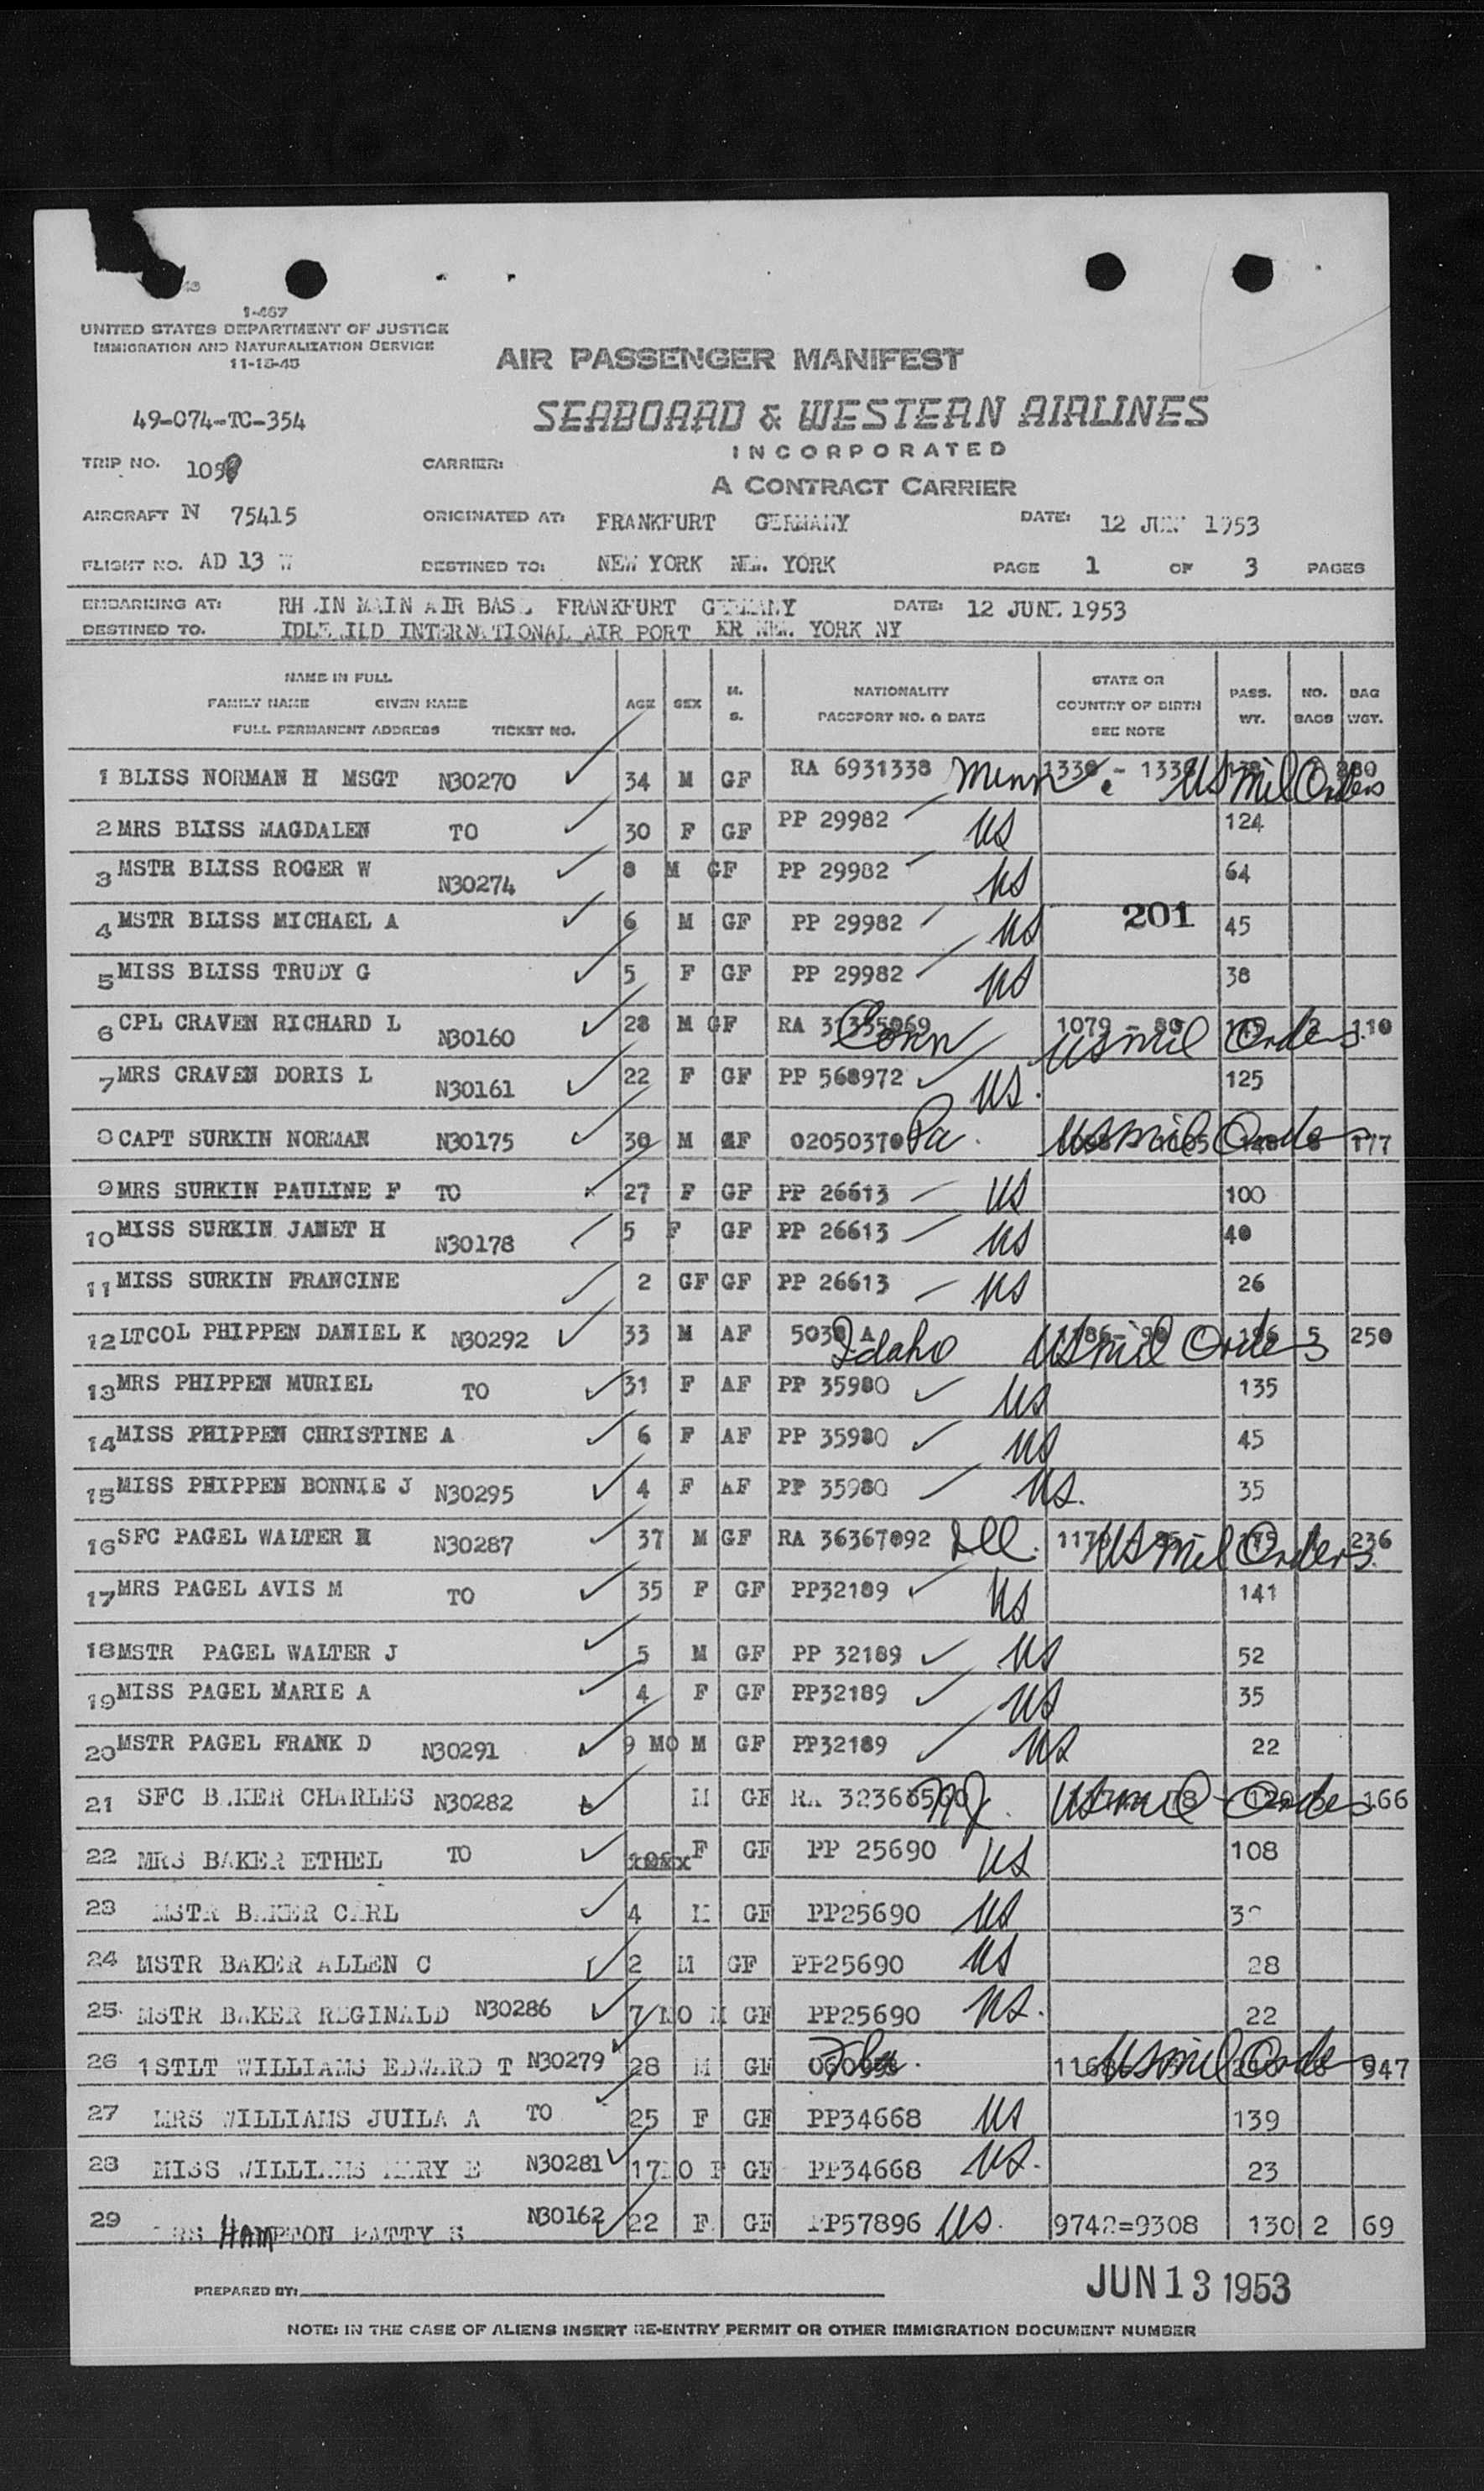 1-467
UNITED STATES DEPARTMENT OF JUSTICE
IMMIGRATION AND NATURALIZATION SERVICE
11-15-45
AIR PASSENGER MANIFEST
49-074-TC-354
SEABOARD & WESTERN AIRLINES
INCORPORATED
A CONTRACT CARRIER
TRIP NO. CARRIER:
AIRCRAFT N 75415 ORIGINATED AT: FRANKFURT GERMANY DATE: 12 JUN 1953
FLIGHT NO. AD 13 W DESTINED TO: NEW YORK NEW YORK PAGE 1 OF 3 PAGES
EMBARKING AT: RHEIN MAIN AIR BASE FRANKFURT GERMANY DATE: 12 JUNE 1953
DESTINED TO. IDLEWILD INTERNATIONAL AIR PORT NEW YORK NY
NAME IN FULL
FAMILY NAME GIVEN NAME
FULL PERMANENT ADDRESS TICKET NO.
AGE SEX M. S.
NATIONALITY
PASSPORT NO. & DATE
STATE OR
COUNTRY OF BIRTH
SEE NOTE
PASS. WT. NO. BAGS BAG WGT.
1 BLISS NORMAN H MSGT N30270 34 M GF RA 6931338 Minn. US Mil Orders
2 MRS BLISS MAGDALEN TO 30 F GF PP 29982 US 124
3 MSTR BLISS ROGER W N30274 8 M GF PP 29982 US 64
4 MSTR BLISS MICHAEL A 6 M GF PP 29982 US 201 45
5 MISS BLISS TRUDY G 5 F GF PP 29982 US 38
6 CPL CRAVEN RICHARD L N30160 28 M GF RA Conn US Mil Orders 110
7 MRS CRAVEN DORIS L N30161 22 F GF PP 568972 US. 125
8 CAPT SURKIN NORMAN N30175 30 M GF 02050370 Pa. US Mil Orders 177
9 MRS SURKIN PAULINE F TO 27 F GF PP 26613 US 100
10 MISS SURKIN JANET H N30178 5 F GF PP 26613 US 40
11 MISS SURKIN FRANCINE 2 GF GF PP 26613 US 26
12 LTCOL PHIPPEN DANIEL K N30292 33 M AF Idaho US Mil Orders 5 250
13 MRS PHIPPEN MURIEL TO 31 F AF PP 35980 US 135
14 MISS PHIPPEN CHRISTINE A 6 F AF PP 35980 US 45
15 MISS PHIPPEN BONNIE J N30295 4 F AF PP 35980 US. 35
16 SFC PAGEL WALTER H N30287 37 M GF RA 36367092 Ill. US Mil Orders 236
17 MRS PAGEL AVIS M TO 35 F GF PP32189 US 141
18 MSTR PAGEL WALTER J 5 M GF PP 32189 US 52
19 MISS PAGEL MARIE A 4 F GF PP32189 US 35
20 MSTR PAGEL FRANK D N30291 9 MO M GF PP32189 US 22
21 SFC BAKER CHARLES N30282 M GF RA NJ. US Mil Orders 166
22 MRS BAKER ETHEL TO F GF PP 25690 US 108
23 MSTR BAKER CARL 4 M GF PP25690 US
24 MSTR BAKER ALLEN C 2 M GF PP25690 US 28
25. MSTR BAKER REGINALD N30286 7 MO M GF PP25690 US. 22
26 1STLT WILLIAMS EDWARD T N30279 28 M GF Fla. US Mil Orders 947
27 MRS WILLIAMS JUILA A TO 25 F GF PP34668 US 139
28 MISS WILLIAMS MARY E N30281 17MO F GF PP34668 US. 23
29 MRS HAMPTON PATTY S N30162 22 F GF PP57896 US. 9742=9308 130 2 69
PREPARED BY:
JUN 13 1953
NOTE: IN THE CASE OF ALIENS INSERT RE-ENTRY PERMIT OR OTHER IMMIGRATION DOCUMENT NUMBER